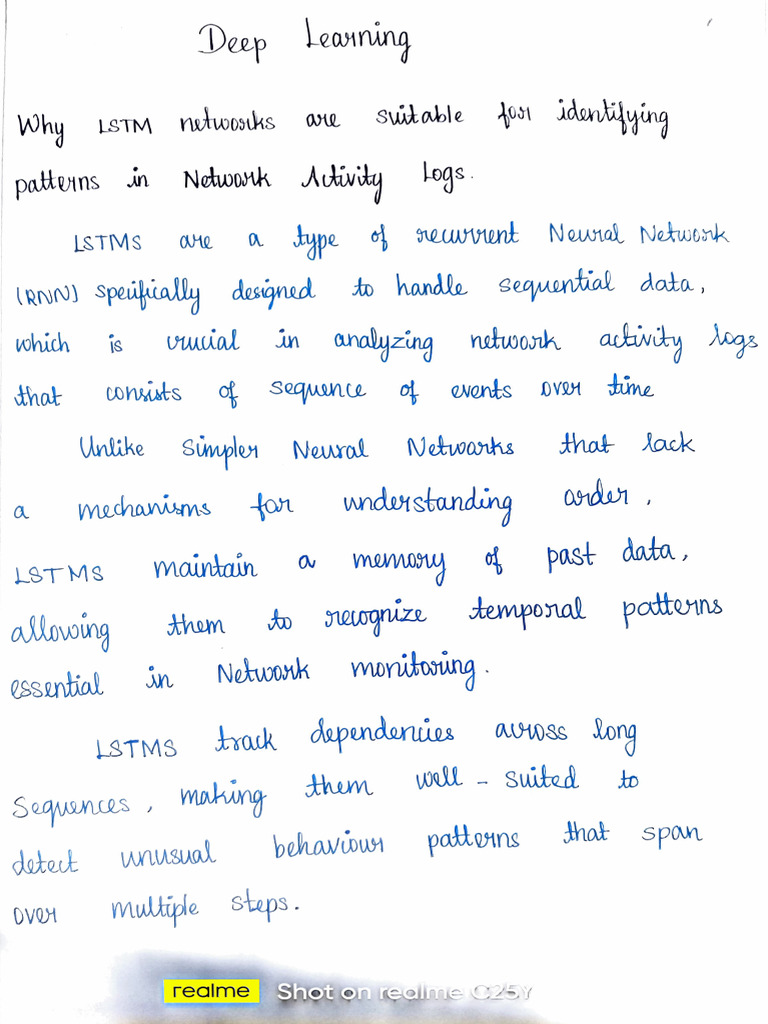 Deep Learning
Why LSTM networks are suitable for identifying
patterns in Network Activity Logs.
LSTMS are a type of recurrent Neural Network
(RNN) specifically designed to handle sequential data,
which is crucial in analyzing network activity logs
that consists of sequence of events over time
Unlike Simpler Neural Networks that lack
a mechanisms for understanding order,
LSTMS maintain a memory of past data,
allowing them to recognize temporal patterns
essential in Network monitoring.
LSTMS track dependencies across long
Sequences, making them well - suited to
detect unusual behaviour patterns that span
over multiple steps.
realme Shot on realme C25Y